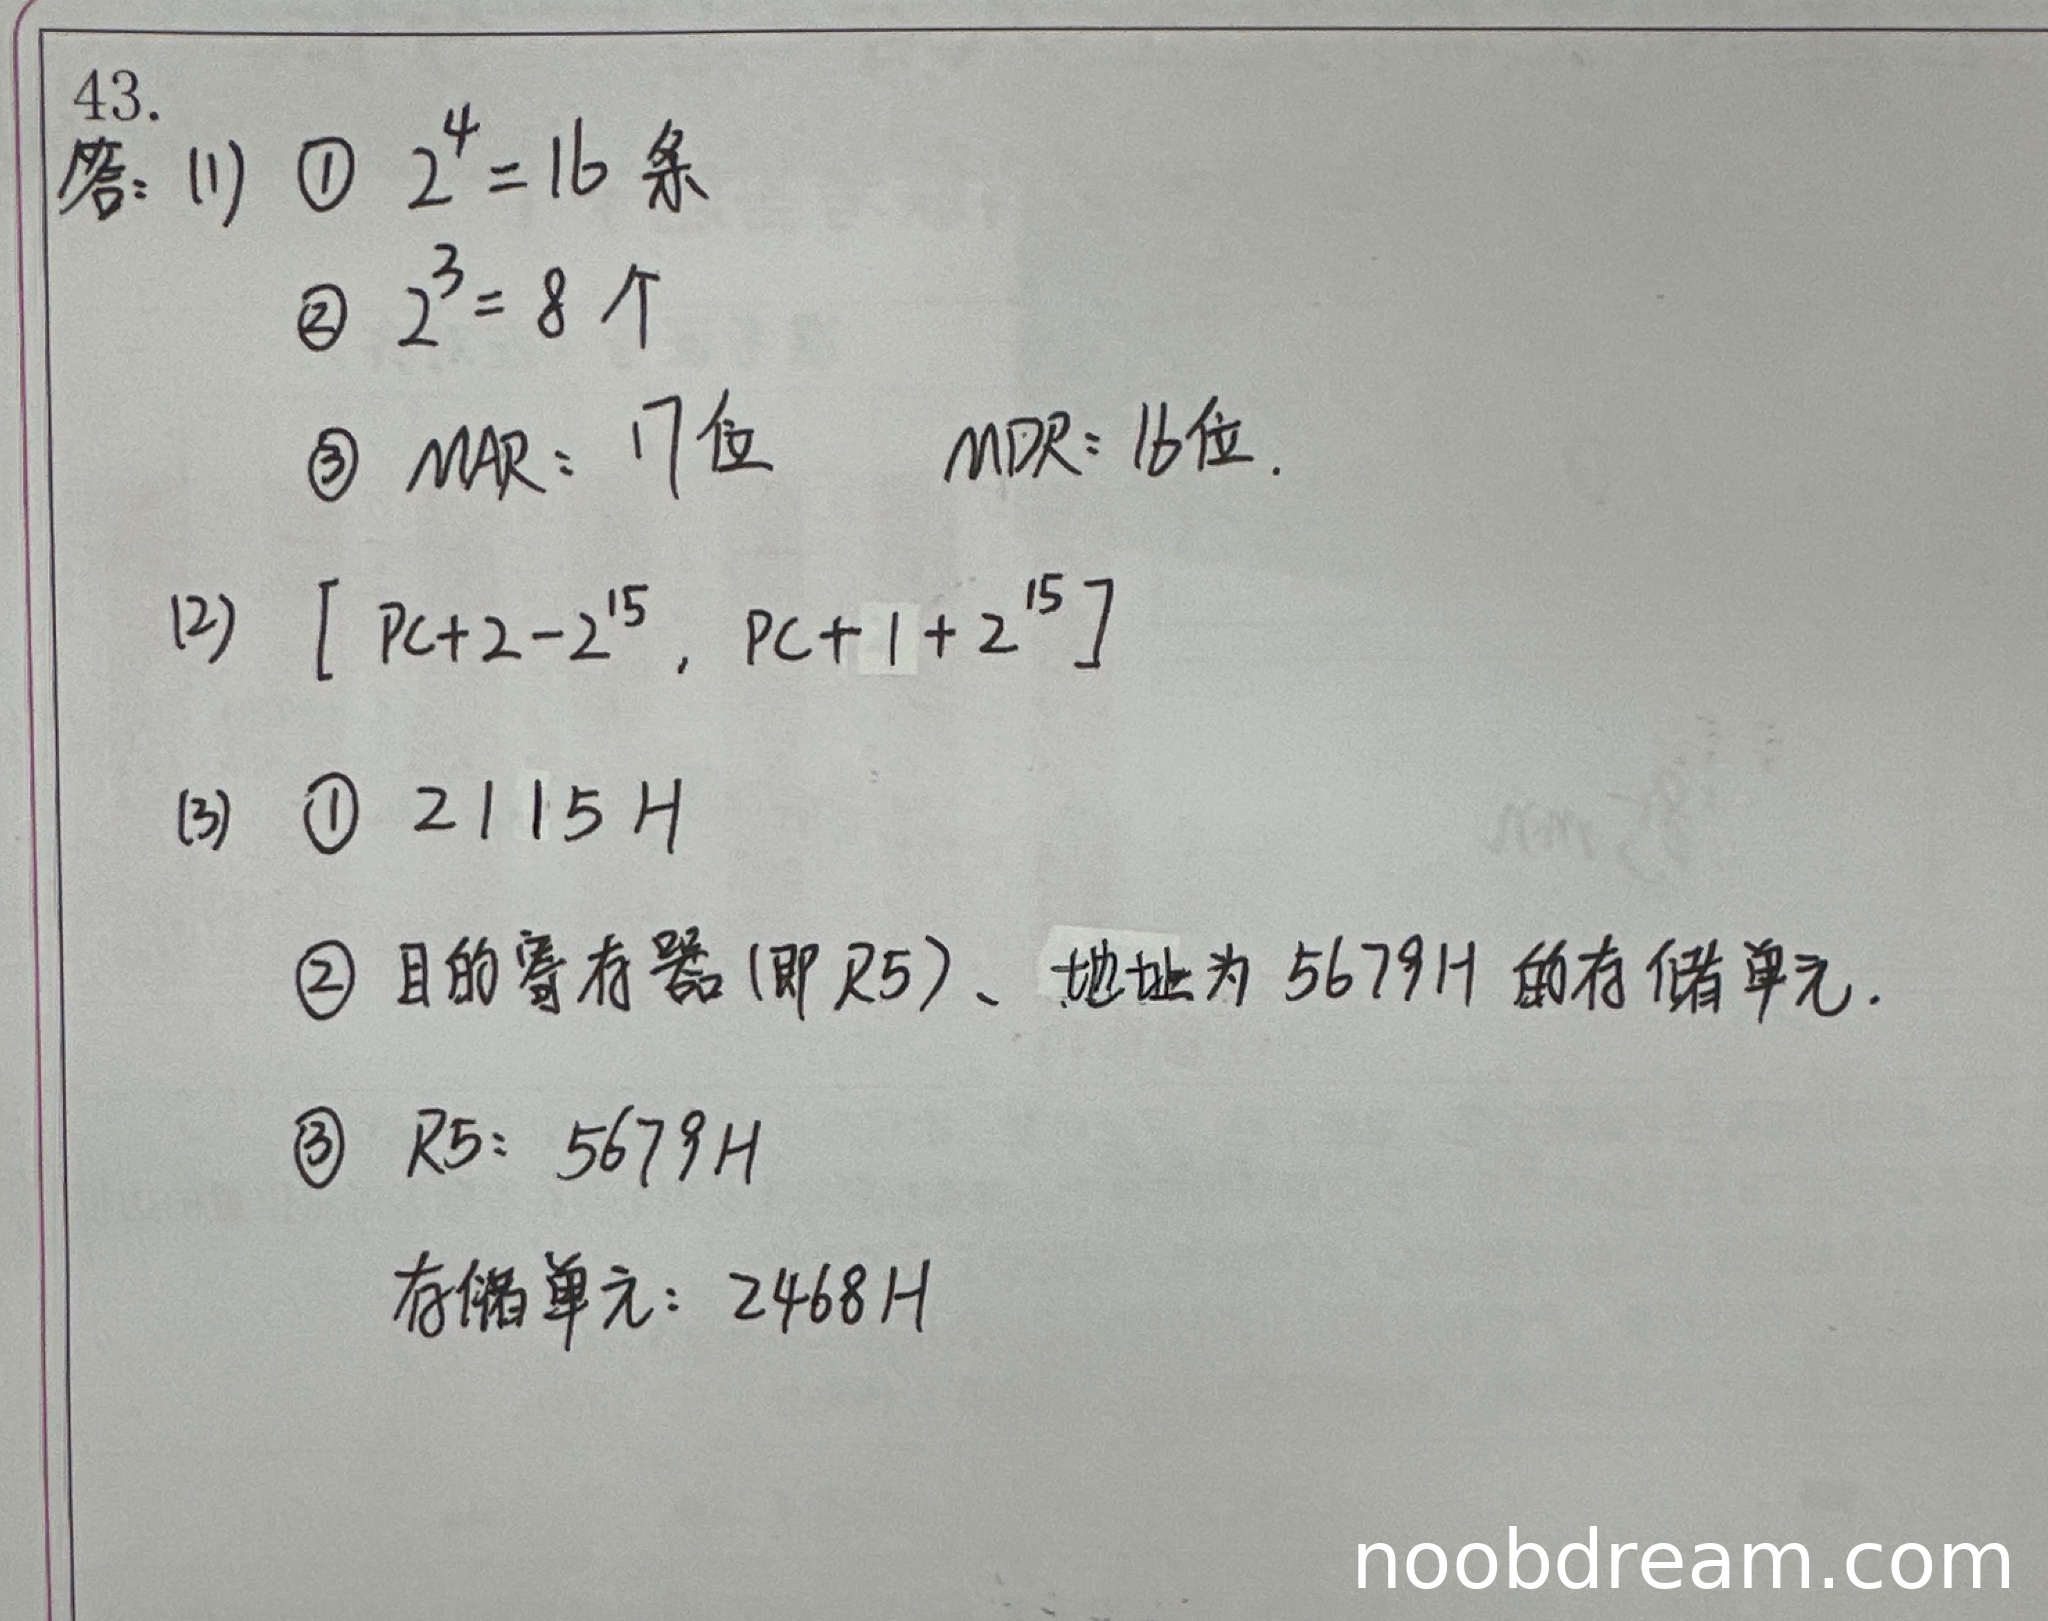 43.
答: (1) ① 2^4 = 16 条
② 2^3 = 8 个
③ MAR: 17位 MDR: 16位.
(2) [ PC+2-2^15, PC+1+2^15 ]
(3) ① 2115H
② 目的寄存器(即R5)、地址为5679H的存储单元.
③ R5: 5679H
存储单元: 2468H
noobdream.com